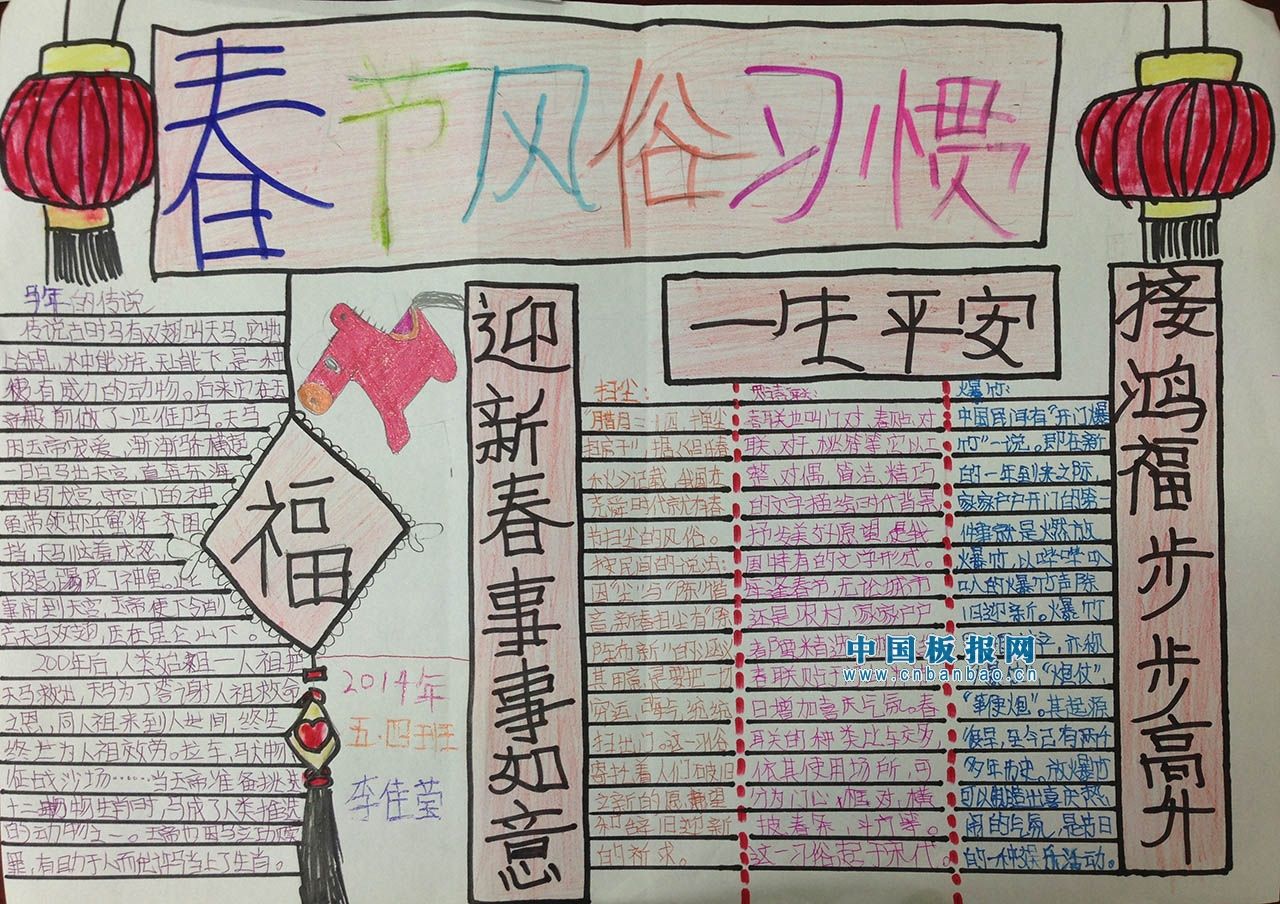 春节风俗习惯
马年的传说
传说古时马有双翅叫天马。它地
上能跑,水中能游,天上能飞,是一种
有威力的动物。后来它在玉
帝殿前做了一匹御马。天马
因玉帝宠爱,渐渐骄横起
一日白马出天宫,直奔东海
硬闯龙宫。守宫门的神
龟带领虾兵蟹将一齐阻
挡,天马
飞腿踢死了神龟。
事闹到天宫,玉帝便下令削
去天马双翅,压在昆仑山下。
200年后,人类始祖—人祖
天马救出,天马为了答谢人祖救命
之恩,同人祖来到人世间,终生
终世为人祖效劳。拉车、马犬物
征战沙场……当玉帝准备挑选
十二种动物生肖时,马成了人类推选
的动物之一。玉帝也因马立功赎
罪,有助于人而也让马当上了生肖。
福
2014年
五.四班
李佳莹
迎新春事事如意
一生平安
接鸿福步步高升
扫尘:
"腊月二十四,掸尘
扫房子"据《吕氏春
秋》记载,我国在
尧舜时代就有春
节扫尘的风俗。
按民间的说法:
因"尘"与"陈"谐
音,新春扫尘有"除
陈布新"的涵义
其用意是要把一切
穷运、晦气统统
扫出门。这一习俗
寄托着人们破旧
立新的愿望
和辞旧迎新
的祈求。
贴春联:
春联也叫门对、春贴、对
联、对子、桃符等,它以工
整、对偶、简洁、精巧
的文字描绘时代背景
抒发美好愿望,是我
国特有的文学形式。
每逢春节,无论城市
还是农村,家家户户
春联贴于
日增加喜庆气氛。春
联的种类比较多
依其使用场所,可
分为门心、框对、横
披、春条、斗方等。
这一习俗起于宋代。
爆竹:
中国民间有"开门爆
竹"一说。即在新
的一年到来之际
家家户户开门的第一
件事就是燃放
爆竹,以哔哔叭
叭的爆竹声除
旧迎新。爆竹
"炮仗",
"鞭炮"。其起源
很早,至今已有两千
多年历史。放爆竹
可以制造出喜庆热
闹的气氛,是节日
的一种娱乐活动。
中国板报网
www.cnbanbao.cn